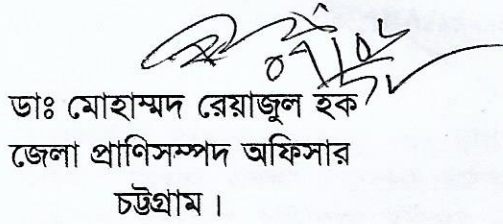 ডাঃ মোহাম্মদ রেয়াজুল হক
জেলা প্রাণিসম্পদ অফিসার
চট্টগ্রাম।